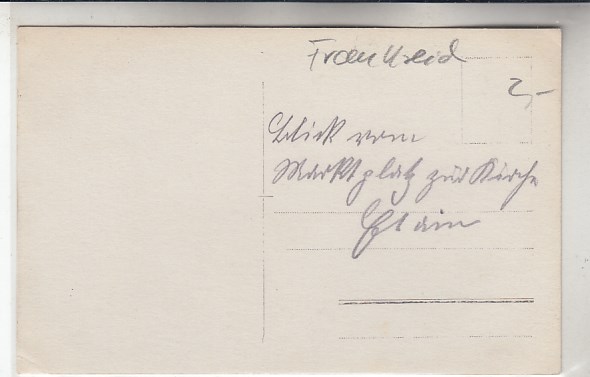 Frankreich
2,-
Blick vom
Marktplatz zur Kirche
Etain